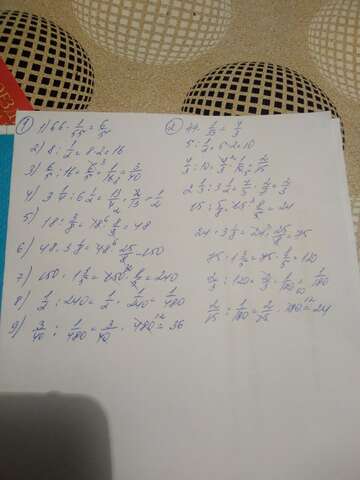 ① 1) 66 · 1/55 = 6/5
2) 8 : 1/2 = 8·2 = 16
3) 6/5 : 16 = 6/5 · 1/16 = 3/40
4) 3 1/4 : 6 1/2 = 13/4 · 2/13 = 1/2
5) 18 : 3/8 = 18 · 8/3 = 48
6) 48 · 3 1/8 = 48 · 25/8 = 150
7) 150 · 1 3/5 = 150 · 8/5 = 240
8) 1/2 : 240 = 1/2 · 1/240 = 1/480
9) 3/40 : 1/480 = 3/40 · 480 = 36
② 44 · 1/33 = 4/3
5 : 1/2 = 5·2 = 10
4/3 : 10 = 4/3 · 1/10 = 2/15
2 1/3 : 3 1/2 = 7/3 · 2/7 = 2/3
15 : 5/8 = 15 · 8/5 = 24
24 · 3 1/8 = 24 · 25/8 = 75
75 · 1 3/5 = 75 · 8/5 = 120
2/3 : 120 = 2/3 · 1/120 = 1/180
2/15 : 1/180 = 2/15 · 180 = 24